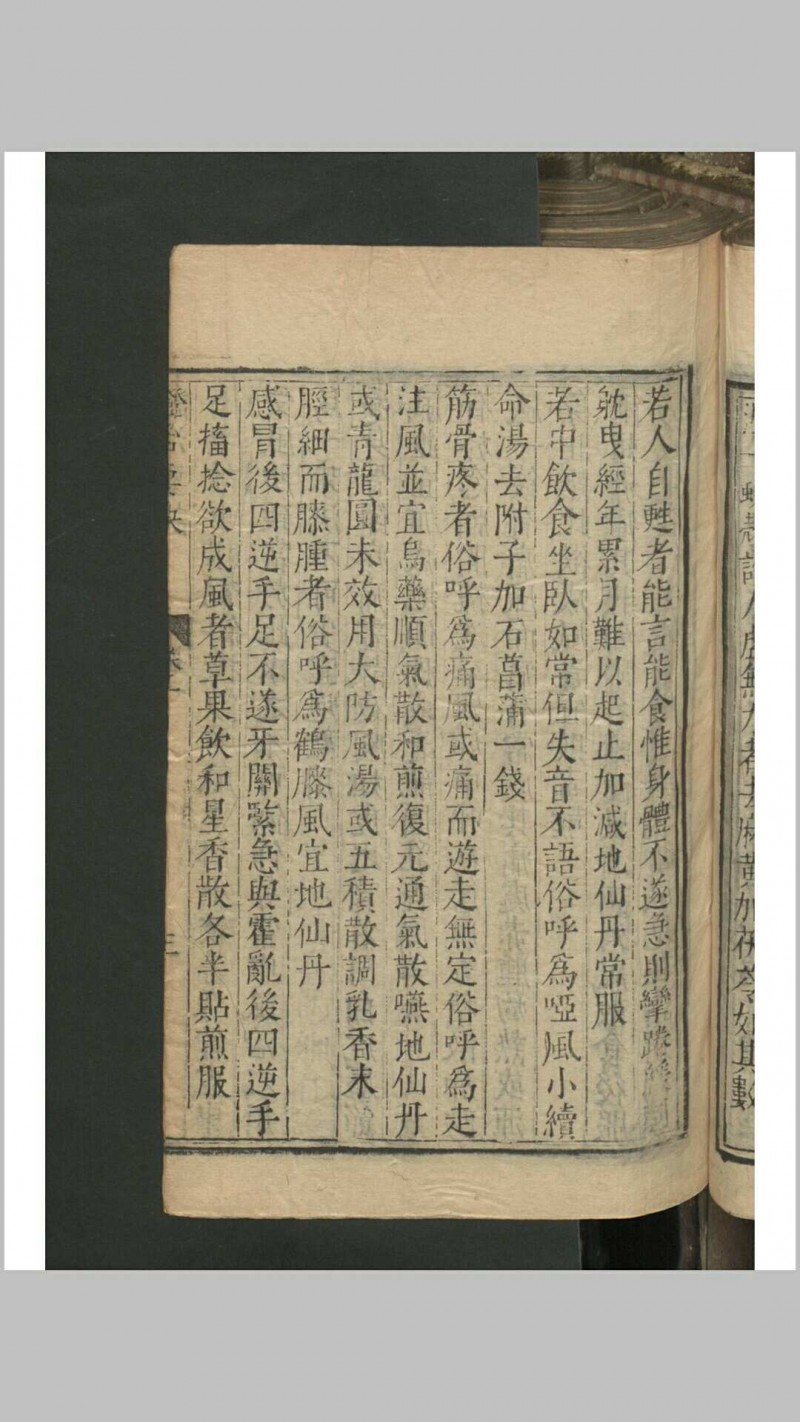 若人自甦者能言能食惟身體不遂急則攣踡緩則
躭曳經年累月難以起止加減地仙丹常服
若中飲食坐臥如常但失音不語俗呼爲啞風小續
命湯去附子加石菖蒲一錢
筋骨疼者俗呼爲痛風或痛而遊走無定俗呼爲走
注風並宜烏藥順氣散和煎復元通氣散嚥地仙丹
或青龍圓未效用大防風湯或五積散調乳香末
脛細而膝腫者俗呼爲鶴膝風宜地仙丹
感冐後四逆手足不遂牙關緊急與霍亂後四逆手
足搐捻欲成風者草果飲和星香散各半貼煎服
證治要訣
三